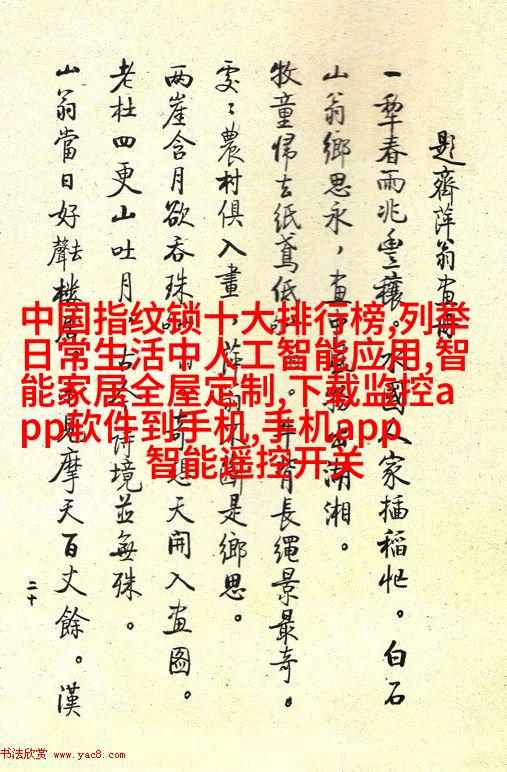 題齊萍翁畫冊
一犂春雨兆豐穰，水國人家插稻忙。白石
山翁鄉思永，畫中 湖湘。
牧童歸去紙鳶低 牛背長繩景最奇。
處〻農村俱入畫，萍翁不斷是鄉思。
两崖含月欲吞珠 奇想天開入畫圖。
老杜四更山吐月。古今詩境並無殊。
山翁當日好聲去樓居 見摩天百丈餘。漢
二十
中国指纹锁十大排行榜,列举
日常生活中人工智能应用,智
能家居全屋定制,下载监控a
pp软件到手机,手机app
智能遥控开关
书法欣赏 www.yac8.com